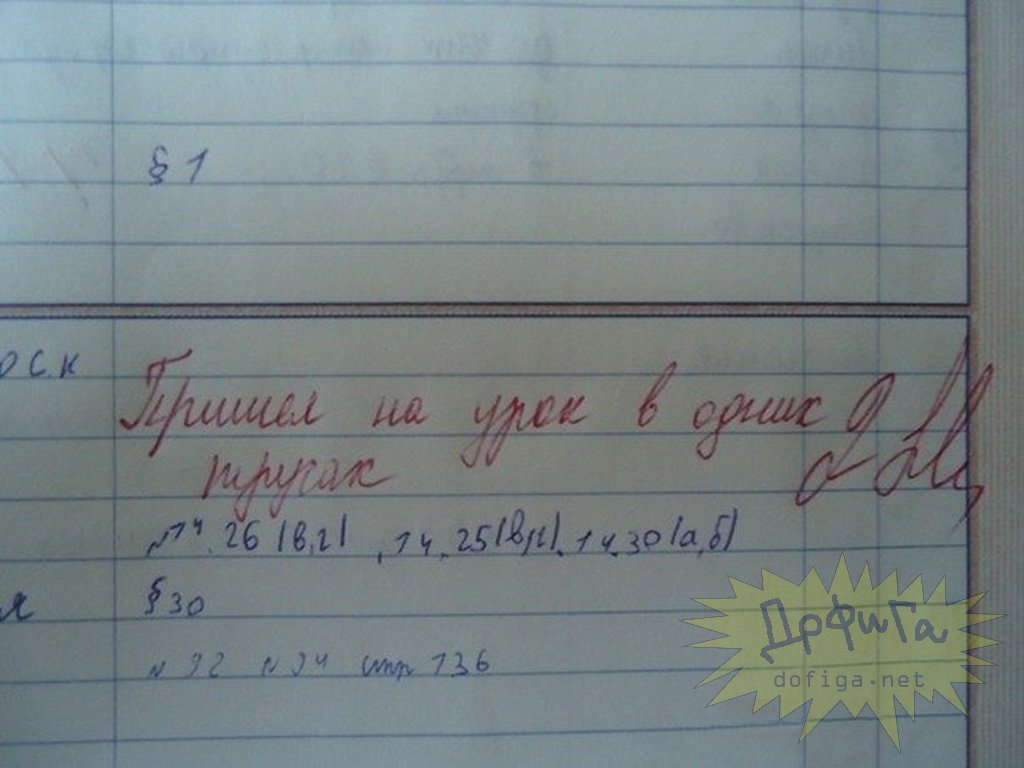 § 1
О С. К
Пришел на урок в одних 2
трусах
№14.26 (в,г), 14.25(в,г), 14.30(а,б)
я § 30
№ 92 № 94 стр 136
ДОФиГа
dofiga.net